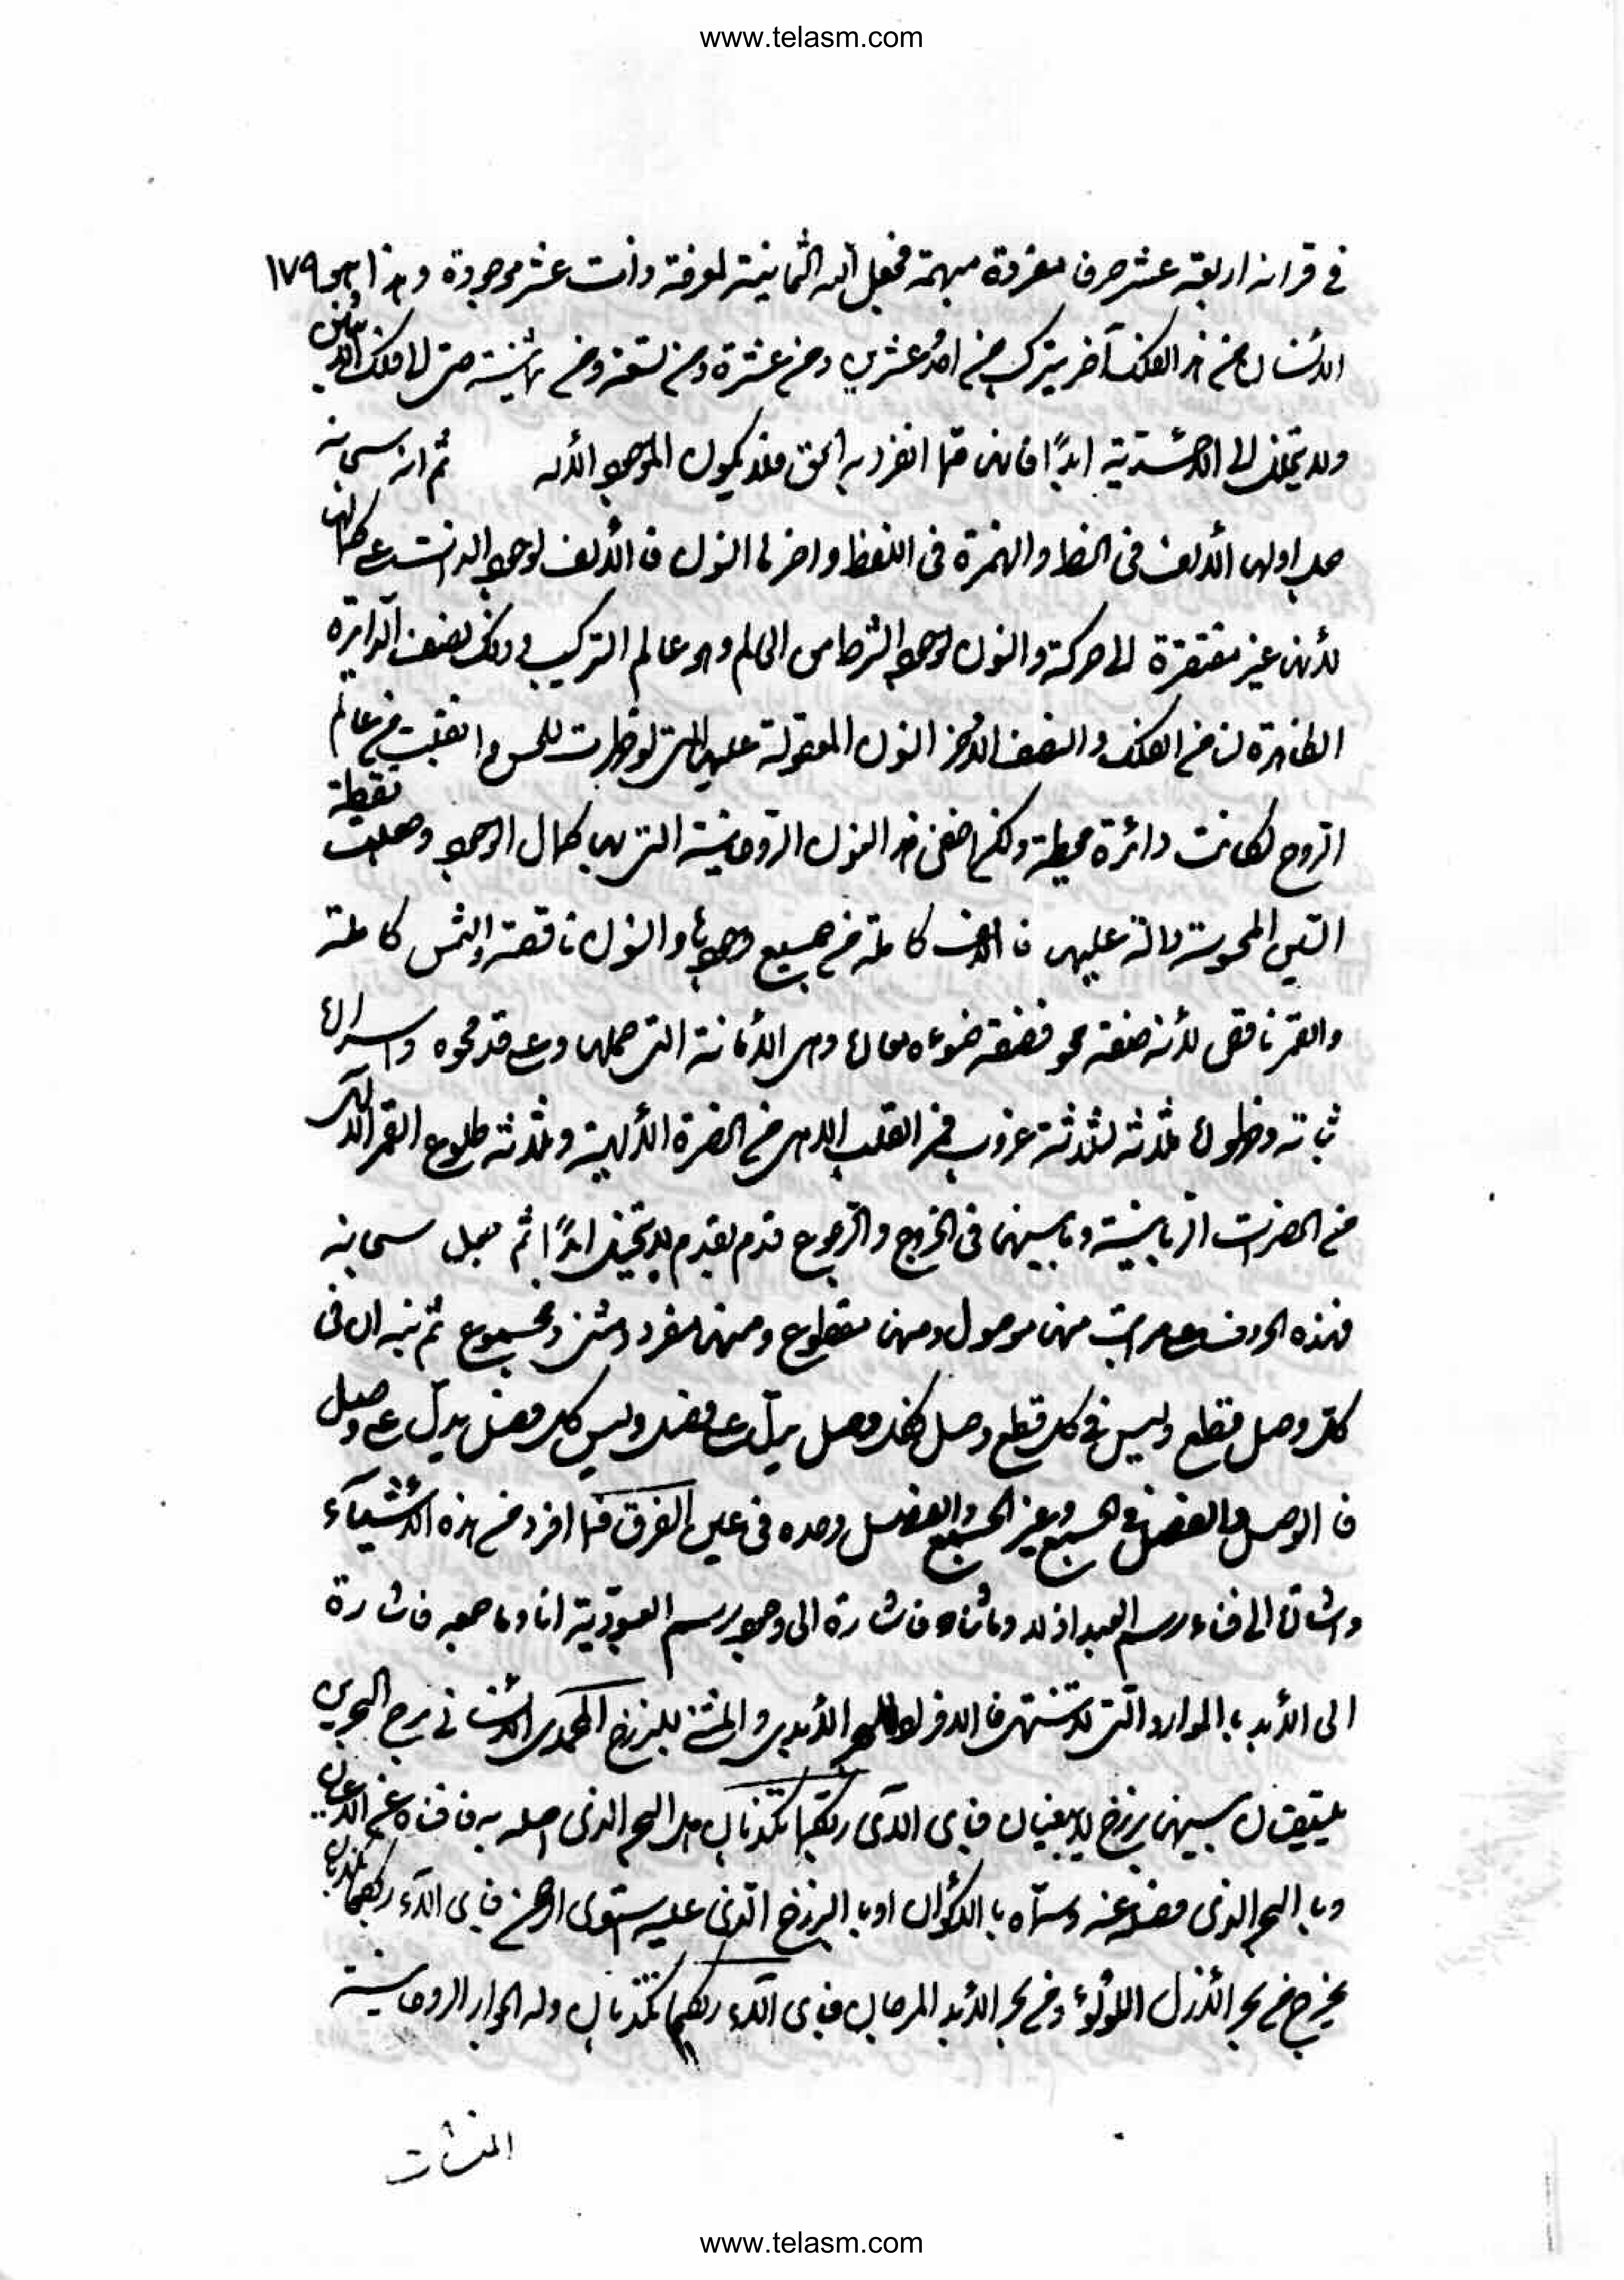 www.telasm.com
في قرانه اربعة عشر حرفا مفردة مبهمة فجعل الثمانية لمعرفة وذات عشر موجودة وهذا ١٧٩
الانسان من هذا الفلك آخر يتركب من احد عشرين ومن عشرة ومن تسعة ومن ثمانية حتى الى فلك الاثنين
ولا يتحلل الى الاحدية ابدًا فانها مما انفرد به الحق فلا يكون لموجود الا له ثم انه سبحانه
جعل اولها الالف في الخط والهمزة في اللفظ واخرها النون فالالف لوجود الذات على كمالها
لأنها غير مفتقرة الى حركة والنون لوجود الشطر من العالم وهو عالم التركيب وذلك نصف الدايرة
الظاهرة لنا من الفلك والنصف الآخر النون المعقولة عليها التي لو ظهرت للحس وانتقلت من عالم
الروح لكانت دائرة محيطة ولكن اخفى هذه النون الروحانية التي بها كمال الوجود وجعلت نقطة
النون المحسوسة دالة عليها فالالف كاملة من جميع وجوهها والنون ناقصة والشمس كاملة
والقمر ناقص لأنه محو فصفة ضوءه معارة وهي الأمانة التي حملها وعلى قدر محوه وسراره
ثباته وظهوره ثلاثة لثلاثة غروب قمر القلب الالهي في الحضرة الأحدية وثلاثة طلوع القمر الالهي
من الحضرات الربانية وما بينهما في الخروج والرجوع قدم بقدم لا يختل ابدًا ثم جعل سبحانه
فهذه الحروف على مراتب منها موصول ومنها مقطوع ومنها مفرد ومثنى ومجموع ثم نبه ان في
كل وصل قطع وليس في كل قطع وصل فكل وصل يدل على فصل وليس كل فصل يدل على وصل
فالوصل والفصل في الجمع وغير الجمع والفصل وحده في عين الفرق فما افرد من هذه الأشياء
واشارة الى فناء رسم العبد ازلا وما ثناه فاشارة الى وجود رسم العبودية انا وما جمعه فاشارة
الى الأبد بالموارد التي لا تتناهى فالافراد للبحر الأبدي والمثنى للبرزخ المحمدي الانساني مرج البحرين
يلتقيان بينهما برزخ لا يبغيان فبأي الآء ربكما تكذبان هل البحر الذي اوصله به فافناه عن الاعيان
وبالبحر الذي فصله عنه وسماه بالاكوان او بالبرزخ الذي عليه استوى الرحمن فبأي الآء ربكما تكذبان
يخرج من بحر الأزل اللؤلؤ ومن بحر الأبد المرجان فبأي الآء ربكما تكذبان وله الجوار الروحانية
المنشآت
www.telasm.com